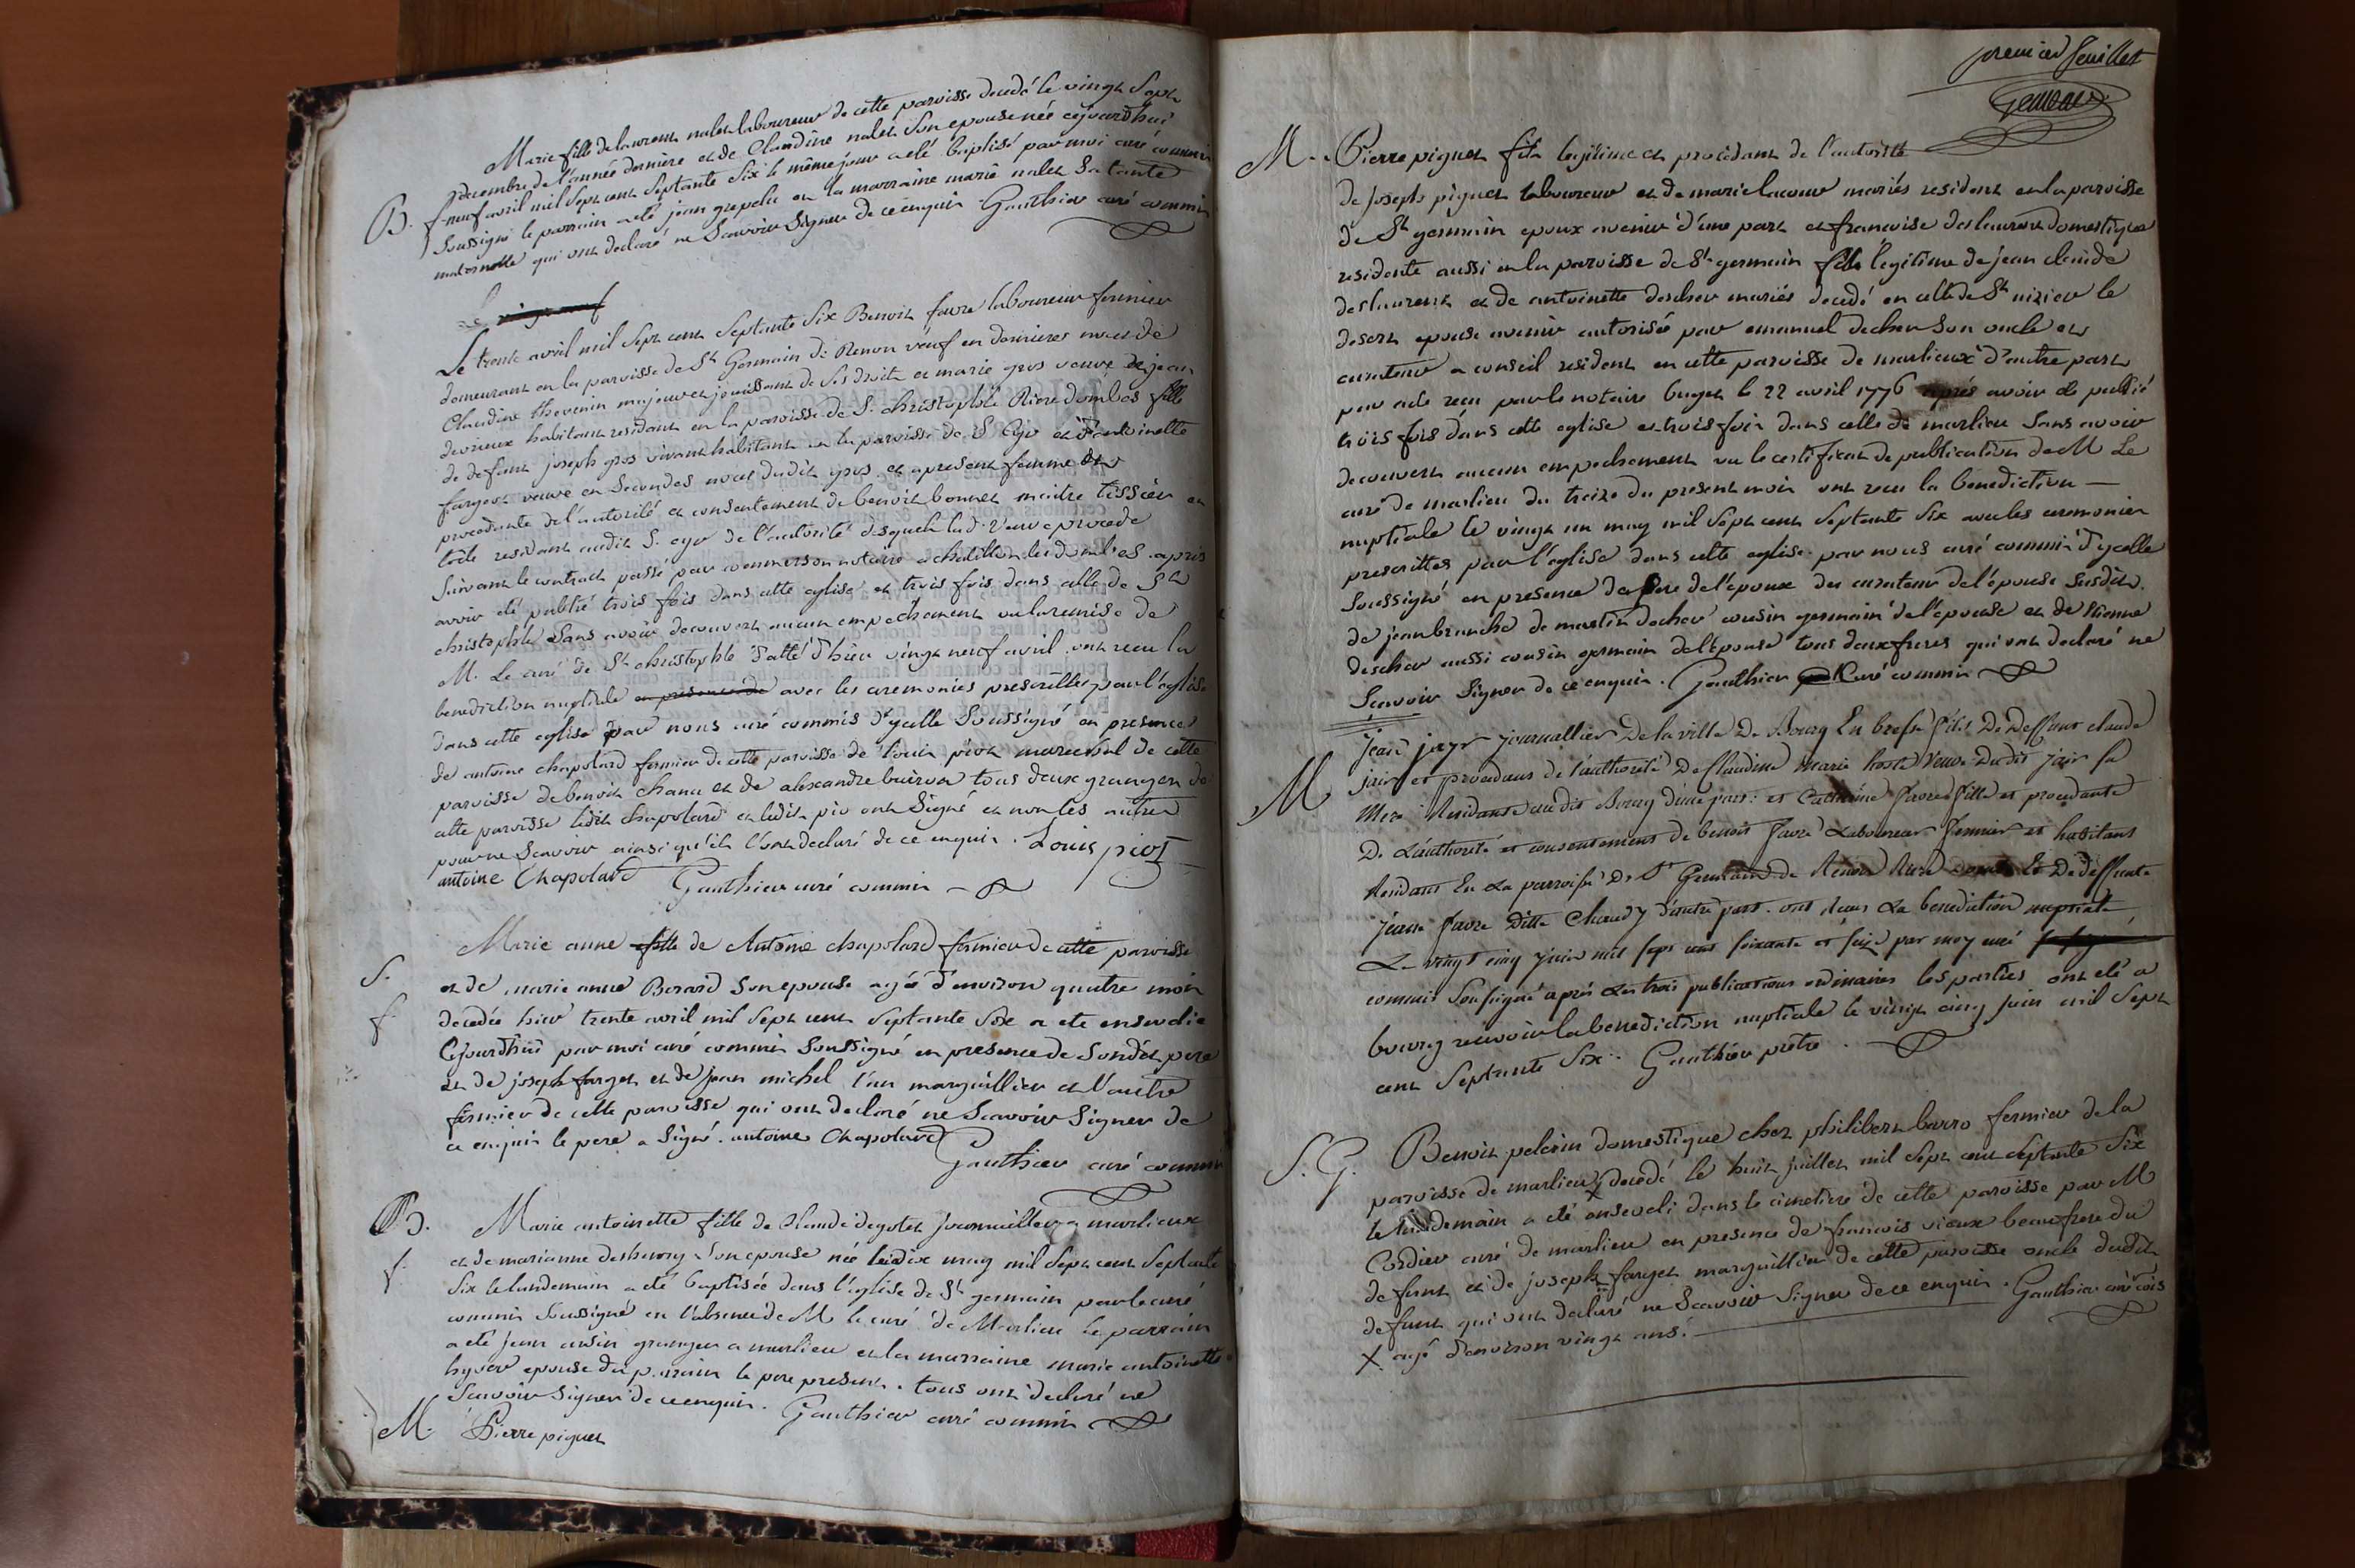 Marie fille de laurent nalet laboureur de cette paroisse decedé le vingt sept
decembre de l'année derniere et de Claudine nalet son epouse née cejourdhui
B. neuf avril mil sept cent septante six le même jour a eté baptisé par moi curé commis
soussigné le parrain a eté jean grepelu et la marraine marie nalet sa tante
maternelle qui ont declaré ne scavoir signer de ce enquis. Gauthier curé commis
Le
Le trente avril mil sept cent septante six Benoit favre laboureur fermier
demeurant en la paroisse de St Germain de Renon veuf en dernieres noces de
Claudine thevenin majeur et jouissant de ses droits et marie gros veuve de jean
devrieux habitant residant en la paroisse de S. christophle Riere dombes fille
de defunt joseph gros vivant habitant en la paroisse de S. Cyr et d'antoinette
farget veuve en secondes noces dudit gros et apresent femme
procedante de l'autorité et consentement de benoit bonnet maitre tissier en
toile residant audit S. cyr de l'autorité desquels lad. veuve procede
suivant le contract passé par commerson notaire a chatillon les dombes. apres
avoir eté publié trois fois dans cette eglise et trois fois dans celle de St
christophle sans avoir decouvert aucun empechement vu la remise de
M. Le curé de St christophle datté d'hier vingt neuf avril ont recu la
benediction nuptiale en presence de avec les ceremonies prescrittes par l'eglise
dans cette eglise par nous curé commis d'ycelle soussigné en presence
de antoine chapolard fermier de cette paroisse de louis piot marechal de cette
paroisse de benoit chanu et de alexandre buiron tous deux granger de
cette paroisse ledit chapolard et ledit pio ont signé et non les autres
pour ne scavoir ainsi qu'ils l'ont declaré de ce enquis. Louis piot
antoine Chapolard Gauthier curé commis
Marie anne fille de Antoine chapolard fermier de cette paroisse
S. et de marie anne Berard son epouse agée d'environ quatre mois
f decedée hier trente avril mil sept cent septante six a ete ensevelie
Cejourdhui par moi curé commis soussigné en presence de son dit pere
et de joseph farget et de jean michel l'un marguillier et l'autre
fermier de cette paroisse qui ont declaré ne scavoir signer de
ce enquis le pere a signé. antoine Chapolard
Gauthier curé commis
B. Marie antoinette fille de Claude degotet journaillier a marlieux
f. et de marianne desharny son epouse née le dix may mil sept cent septante
six le lendemain a eté baptisée dans l'eglise de St germain par le curé
commis soussigné en l'absence de M le curé de Marlieu le parrain
a eté jean cusin granger a marlieu et la marraine marie antoinette
hyver epouse du parrain le pere present. tous ont declaré ne
scavoir signer de ce enquis. Gauthier curé commis
M. Pierre piguet
premier feuillet
M. Pierre piguet fils legitime et procedant de l'autorité
de joseph piguet laboureur et de marie lacour mariés resident en la paroisse
de St germain epoux avenir d'une part et francoise deslaurent domestique
residente aussi en la paroisse de St germain fille legitime de jean claude
deslaurent et de antoinette descher mariés decedé en celle de St nizier le
desert epouse avenir autorisée par emanuel decher son oncle et
curateur a conseil resident en cette paroisse de marlieux d'autre part
par acte recu par le notaire buget le 22 avril 1776 après avoir été publié
trois fois dans cette eglise et trois fois dans celle de marlieu sans avoir
decouvert aucun empechement vu le certificat de publication de M Le
curé de marlieu du treize du present mois ont recu la benediction
nuptiale le vingt un may mil sept cent septante six avec les ceremonies
prescrittes par l'eglise dans cette eglise par nous curé commis d'ycelle
soussigné en presence du pere de l'epoux du curateur de l'épouse susdits.
de jean branche de martin decher cousin germain de l'epouse et de Etienne
descher aussi cousin germain de l'epouse tous deux freres qui ont declaré ne
scavoir signer de ce enquis. Gauthier curé commis
Jean jayr journallier De la ville De Bourg En bresse fils De Deffunt claude
M jair et procedant de l'authorité De Claudine Marie hoste Veuve Dudit jair sa
Mere Residante audit Bourg d'une part: et Catherine favre fille et procedante
De L'authorité et consentement de benoit favre Laboureur fermier et habitant
Residant En La parroisse De St Germain de Renon Et De deffunte
Jeanne favre Ditte Chaudy d'autre part. ont recus La benediction nuptiale
Le vingt cinq juin mil sept cent soixante et seize par moy curé
commis soussigné après Les trois publications ordinaires les parties ont eté a
bourg recevoir la benediction nuptiale le vingt cinq juin mil sept
cent septante six. Gauthier prêtre.
S. G. Benoit pelerin domestique chez philibert barro fermier de la
paroisse de marlieu X decedé le huit juillet mil sept cent septante six
le lendemain a eté enseveli dans le cimetiere de cette paroisse par M
Cordier curé de marlieu en presence de francois vieux beaufrere du
defunt et de joseph farget marguillier de cette paroisse oncle dudit
defunt qui ont declaré ne scavoir signer de ce enquis. Gauthier curé cois
X. agé d'environ vingt ans.